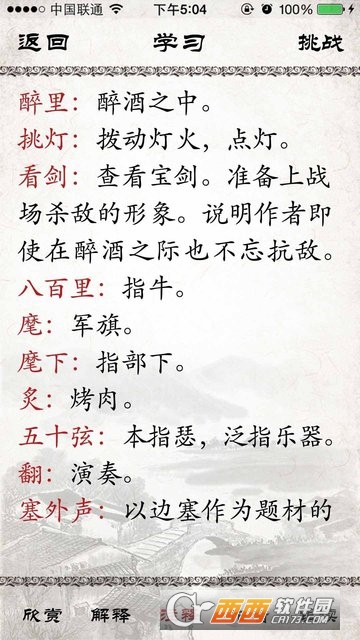 中国联通 下午5:04 100%
返回 学习 挑战
醉里：醉酒之中。
挑灯：拨动灯火，点灯。
看剑：查看宝剑。准备上战
场杀敌的形象。说明作者即
使在醉酒之际也不忘抗敌。
八百里：指牛。
麾：军旗。
麾下：指部下。
炙：烤肉。
五十弦：本指瑟，泛指乐器。
翻：演奏。
塞外声：以边塞作为题材的
欣赏 解释
西西软件园
CR173.com